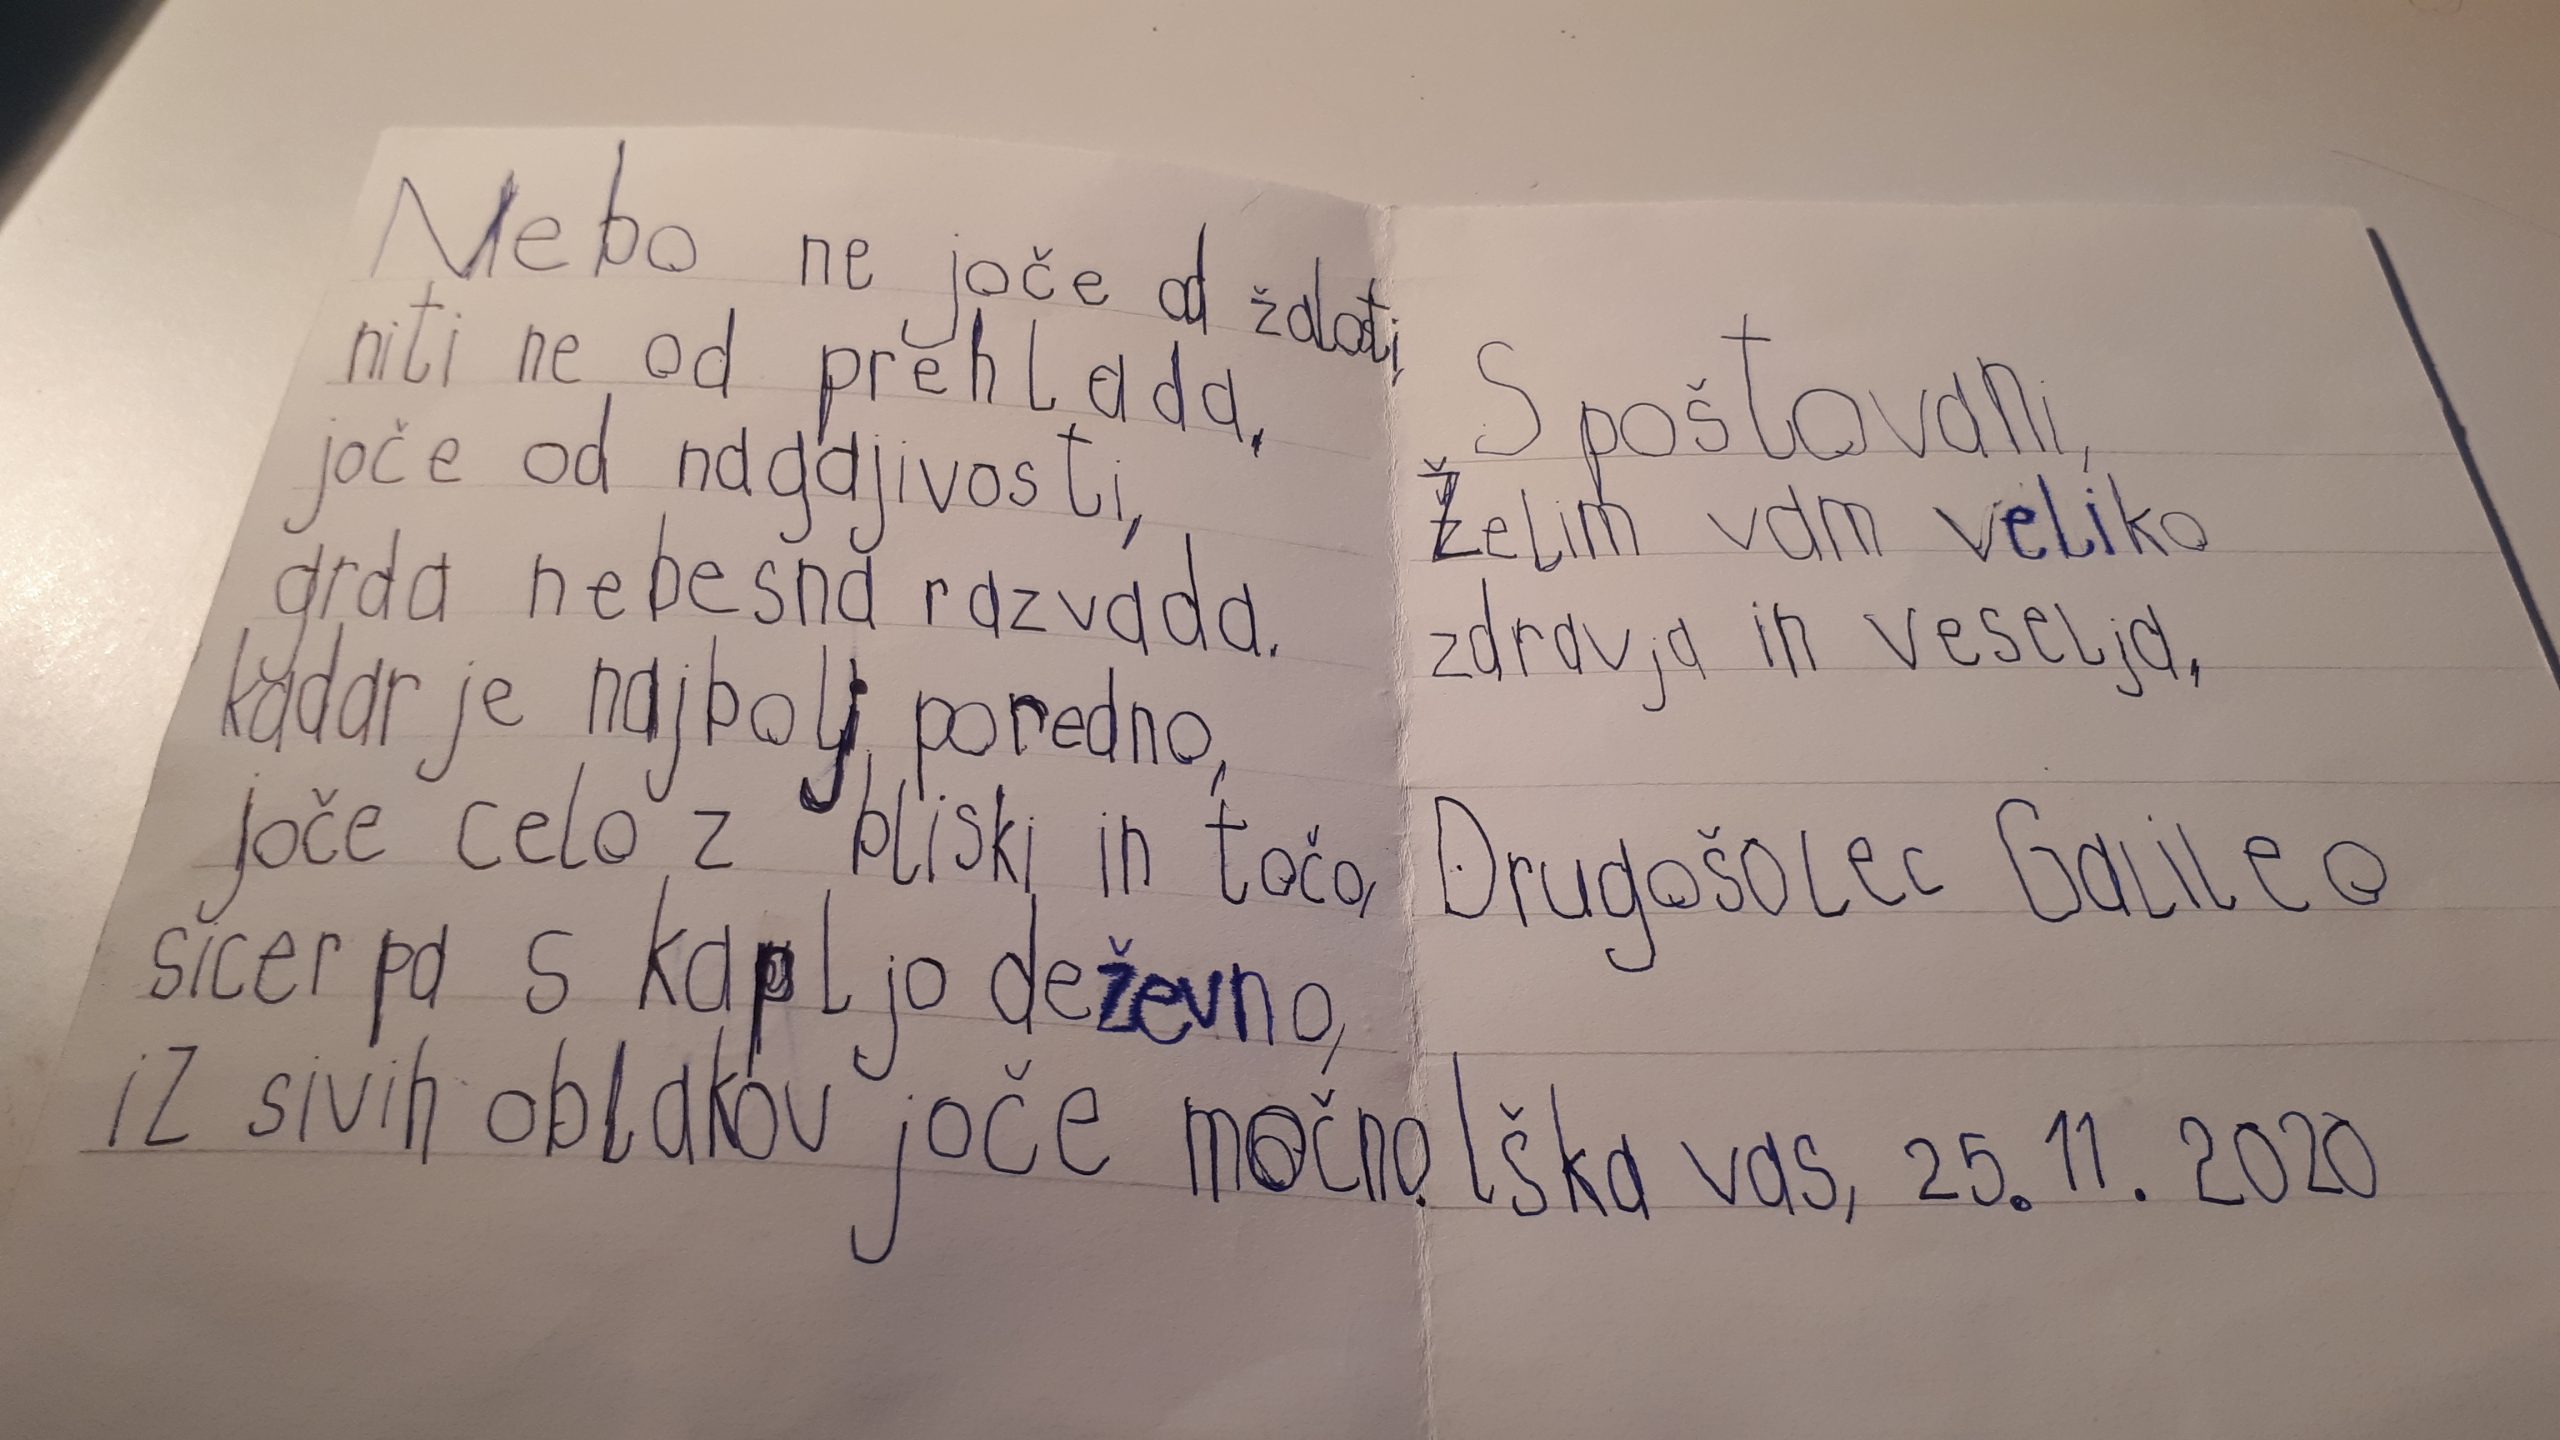 Nebo ne joče od žalosti
niti ne od prehlada,
joče od nagajivosti,
grda nebesna razvada.
kadar je najbolj poredno,
joče celo z bliski in točo,
sicer pa s kapljo deževno,
iz sivih oblakov joče močno.
Spoštovani,
Želim vam veliko
zdravja in veselja,
Drugošolec Galileo
Iška vas, 25. 11. 2020